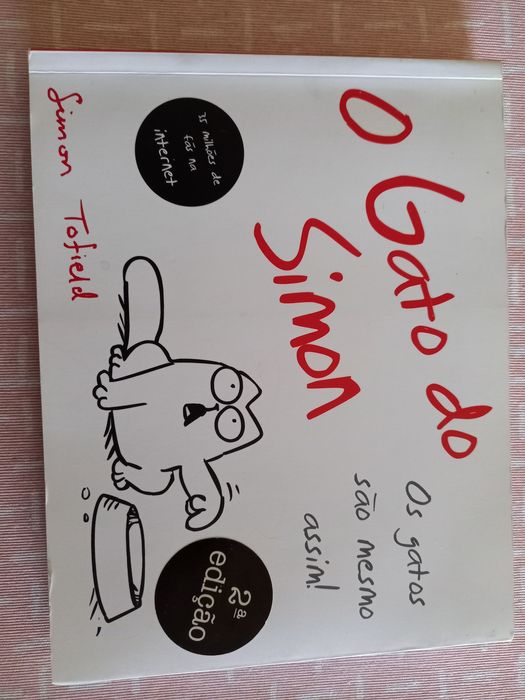 O Gato do
Simon
Os gatos
são mesmo
assim!
35 milhões de
fãs na
internet
2ª
edição
Simon Tofield